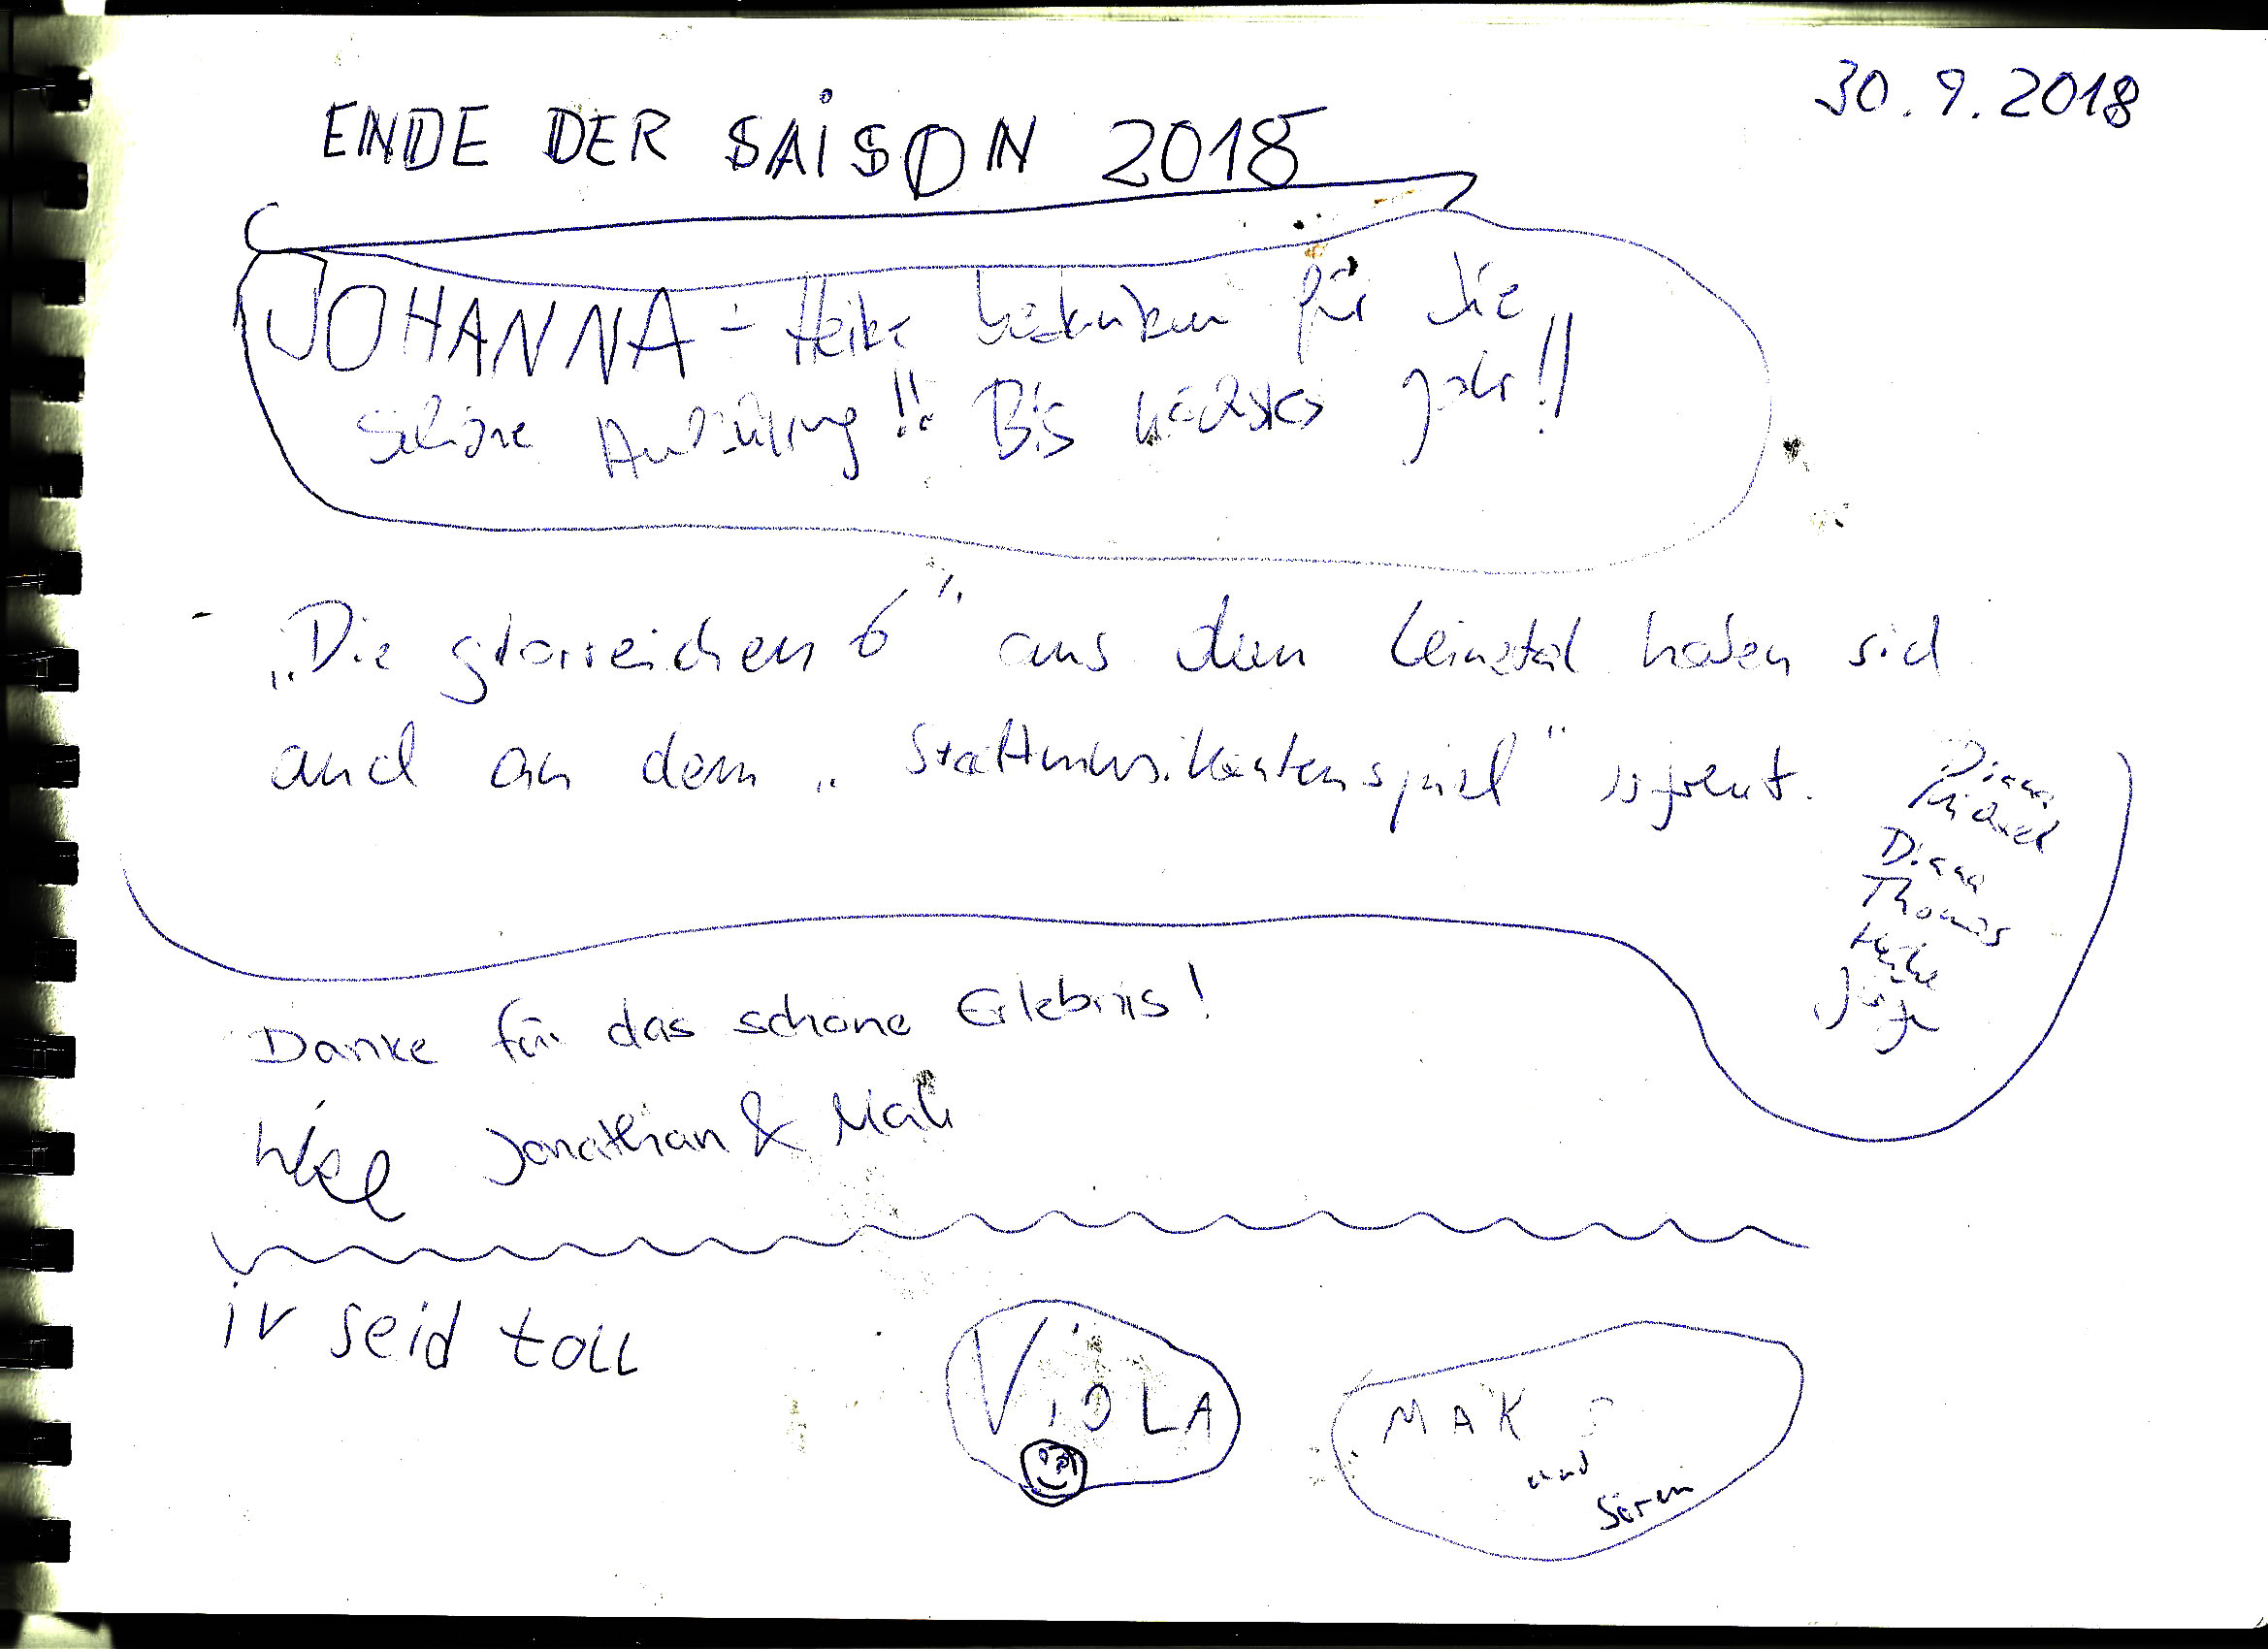 30.9.2018
ENDE DER SAISON 2018
JOHANNA - Heike bedanken für die
schöne Aufführung!! Bis nächstes Jahr!!
„Die glorreichen 6" aus dem Leinetal haben sich
auch an dem „Stattmusikantenspiel" erfreut.
Diana
Michael
Diana
Thomas
Heike
Jürgen
Danke für das schöne Erlebnis!
Jonathan & Mali
ir seid toll
ViOLA
MAK
und
Sören